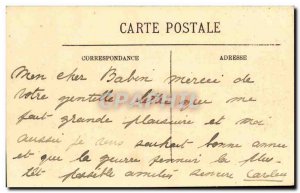 CARTE POSTALE
CORRESPONDANCE
ADRESSE
Mon cher Babin merci de
votre gentille que me
fait grande plaisire et moi
aussie je vous souhait bonne année
et que la guerre finnir la plus
tôt possible amitiés sincere